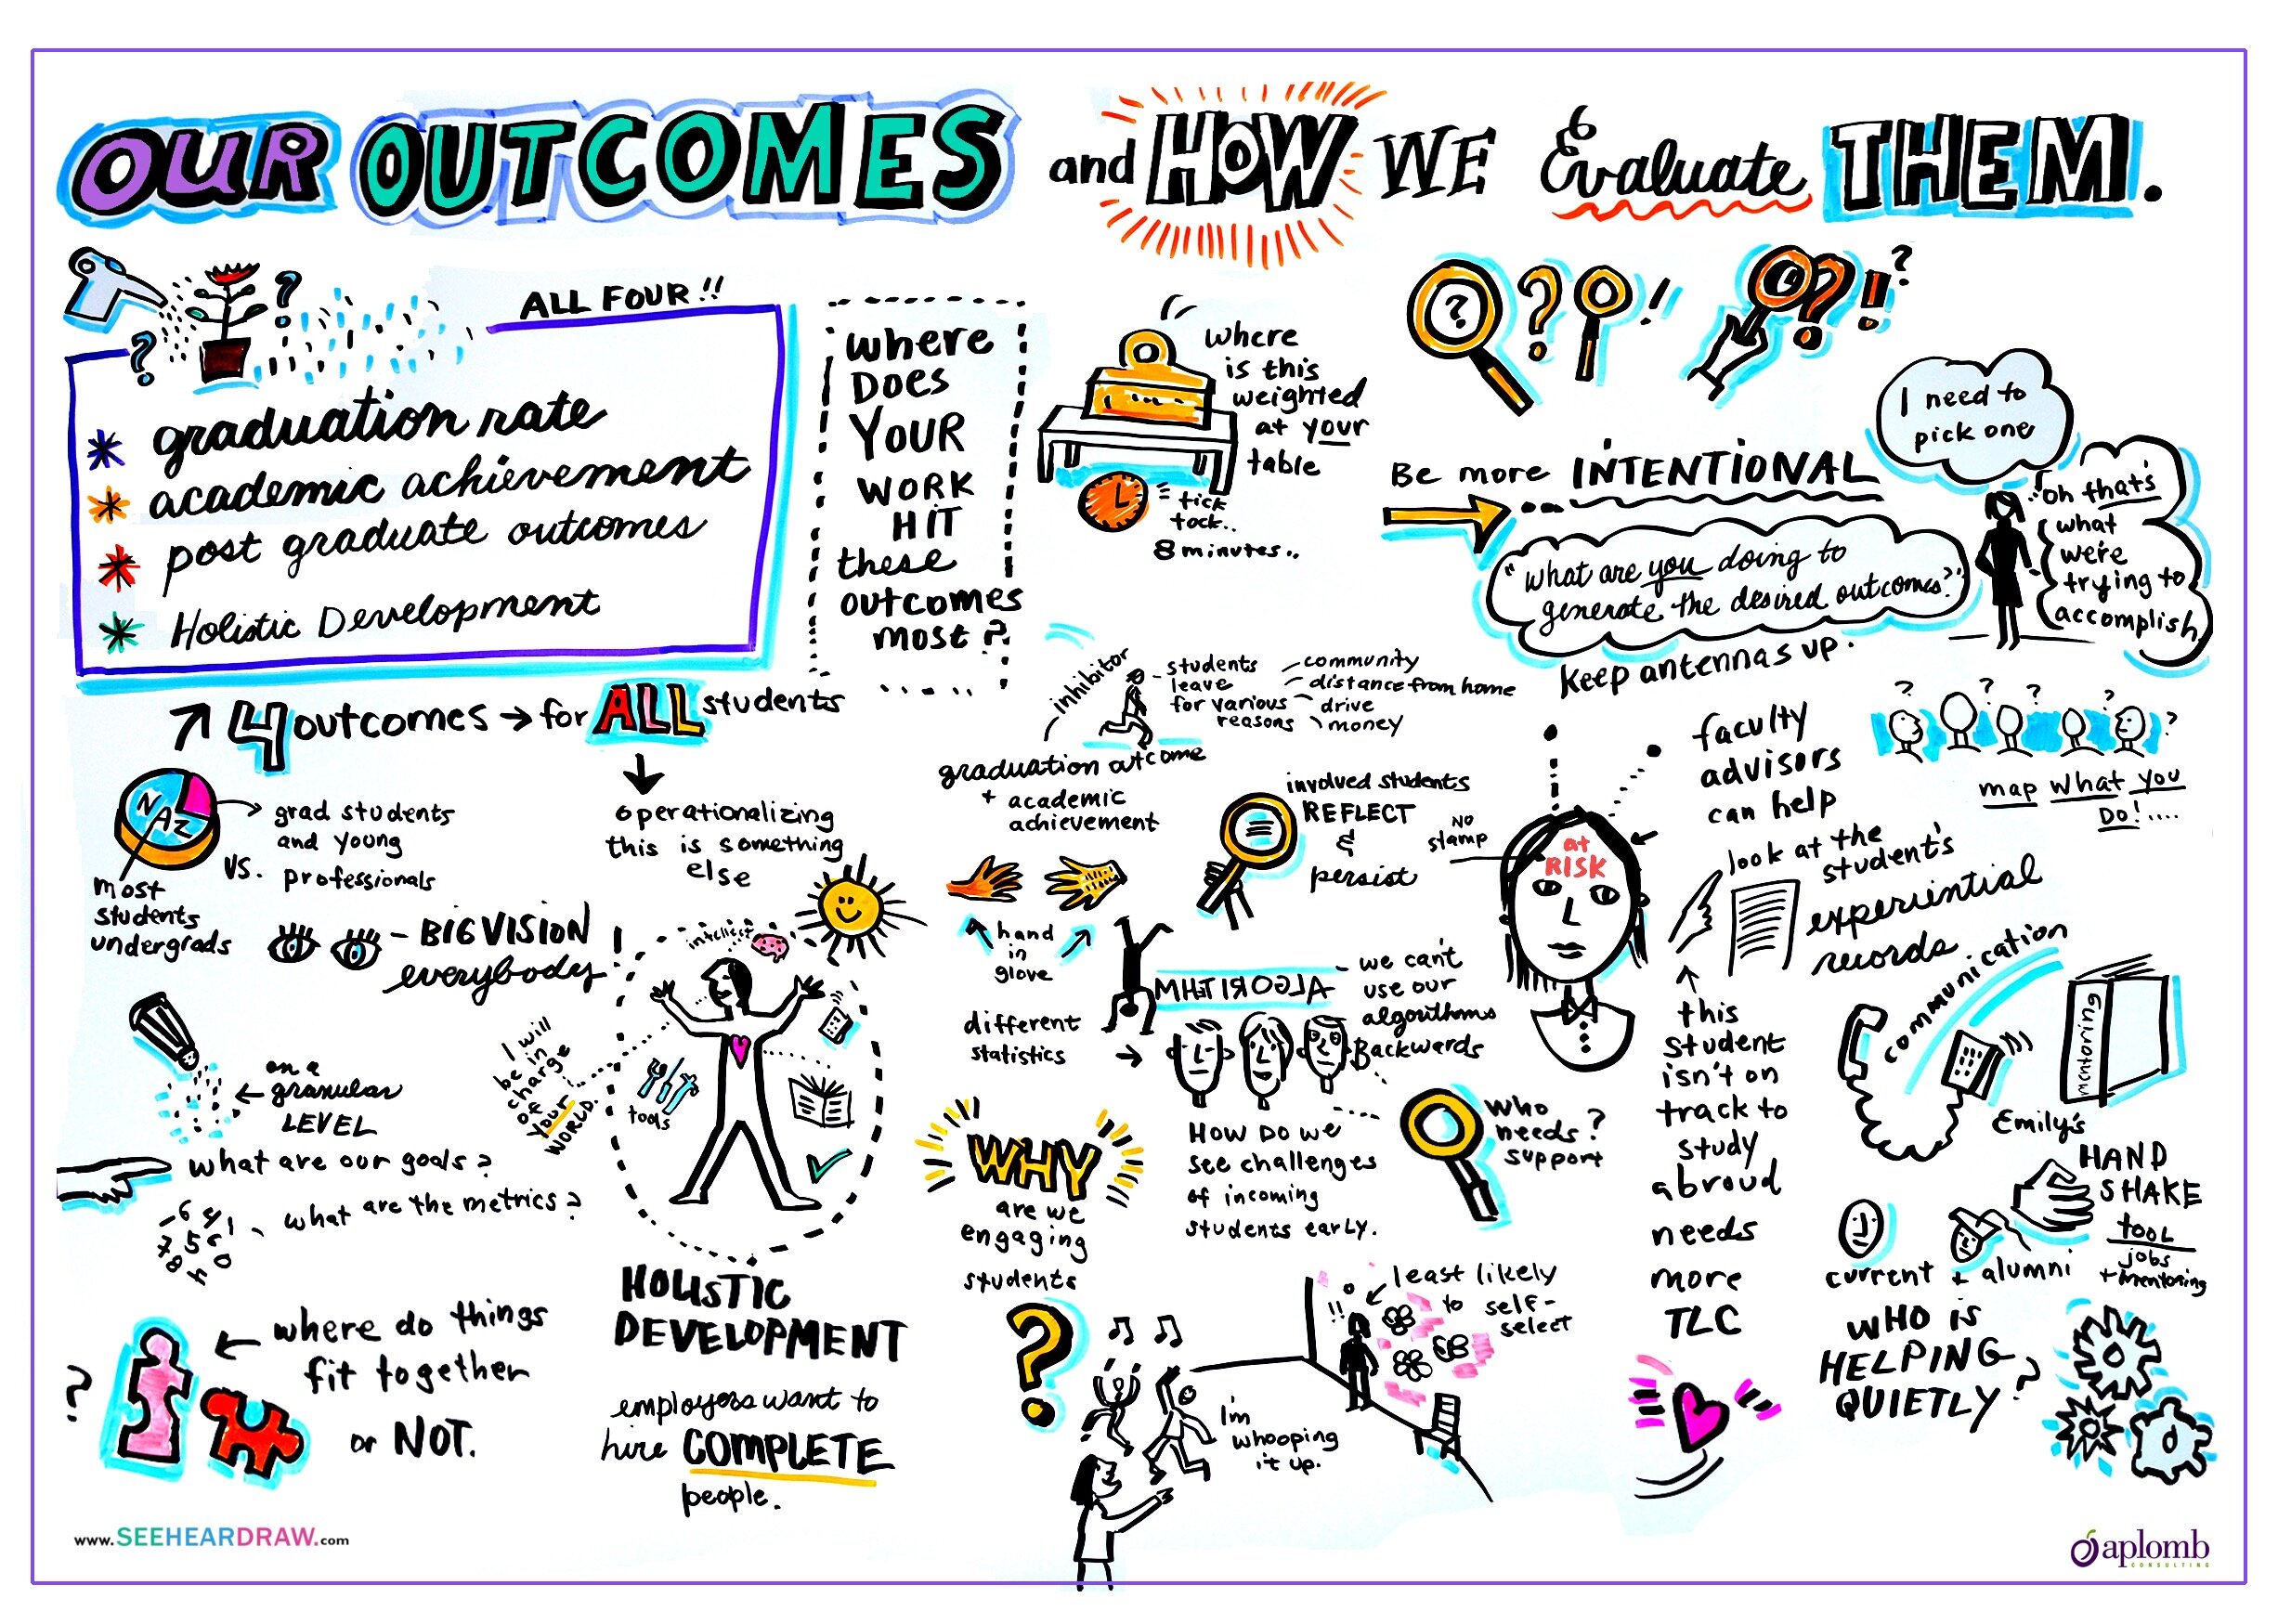 OUR OUTCOMES and HOW WE Evaluate THEM.
ALL FOUR!!
graduation rate
academic achievement
post graduate outcomes
Holistic Development
where
DOES
YOUR
WORK
HIT
these
outcomes
most?
where
is this
weighted
at your
table
= tick
tock..
8 minutes..
Be more INTENTIONAL
"what are you doing to
generate the desired outcomes?"
keep antennas up.
I need to
pick one
oh that's
what
we're
trying to
accomplish
4 outcomes → for ALL students
NAZ
grad students
and young
professionals
VS.
most
students
undergrads
operationalizing
this is something
else
- BIG VISION !
everybody
on a
granular
LEVEL
what are our goals?
what are the metrics?
where do things
fit together
or NOT.
?
intellect
I will
be in
charge
of
your
WORLD.
tools
HOLISTIC
DEVELOPMENT
employers want to
hire COMPLETE
people.
inhibitor
students
leave
for various
reasons
community
distance from home
drive
money
graduation outcome
+ academic
achievement
involved students
REFLECT
&
persist
hand
in
glove
different
statistics
ALGORITHM
- we can't
use our
algorithms
Backwards
HOW DO WE
see challenges
of incoming
students early.
who
needs?
support
WHY
are we
engaging
students
?
I'm
whooping
it up.
!!
least likely
to self-
select
NO
stamp
at
RISK
faculty
advisors
can help
look at the
student's
experiential
records
this
student
isn't on
track to
study
abroad
needs
more
TLC
map what you
DO!....
communication
Emily's
mentoring
HAND
SHAKE
tool
jobs
+ mentoring
current + alumni
WHO IS
HELPING
QUIETLY?
www.SEEHEARDRAW.com
aplomb
CONSULTING